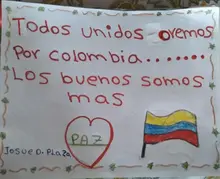 Todos unidos oremos
Por colombia.......
Los buenos somos
mas
PAZ
Josue D. Plaza